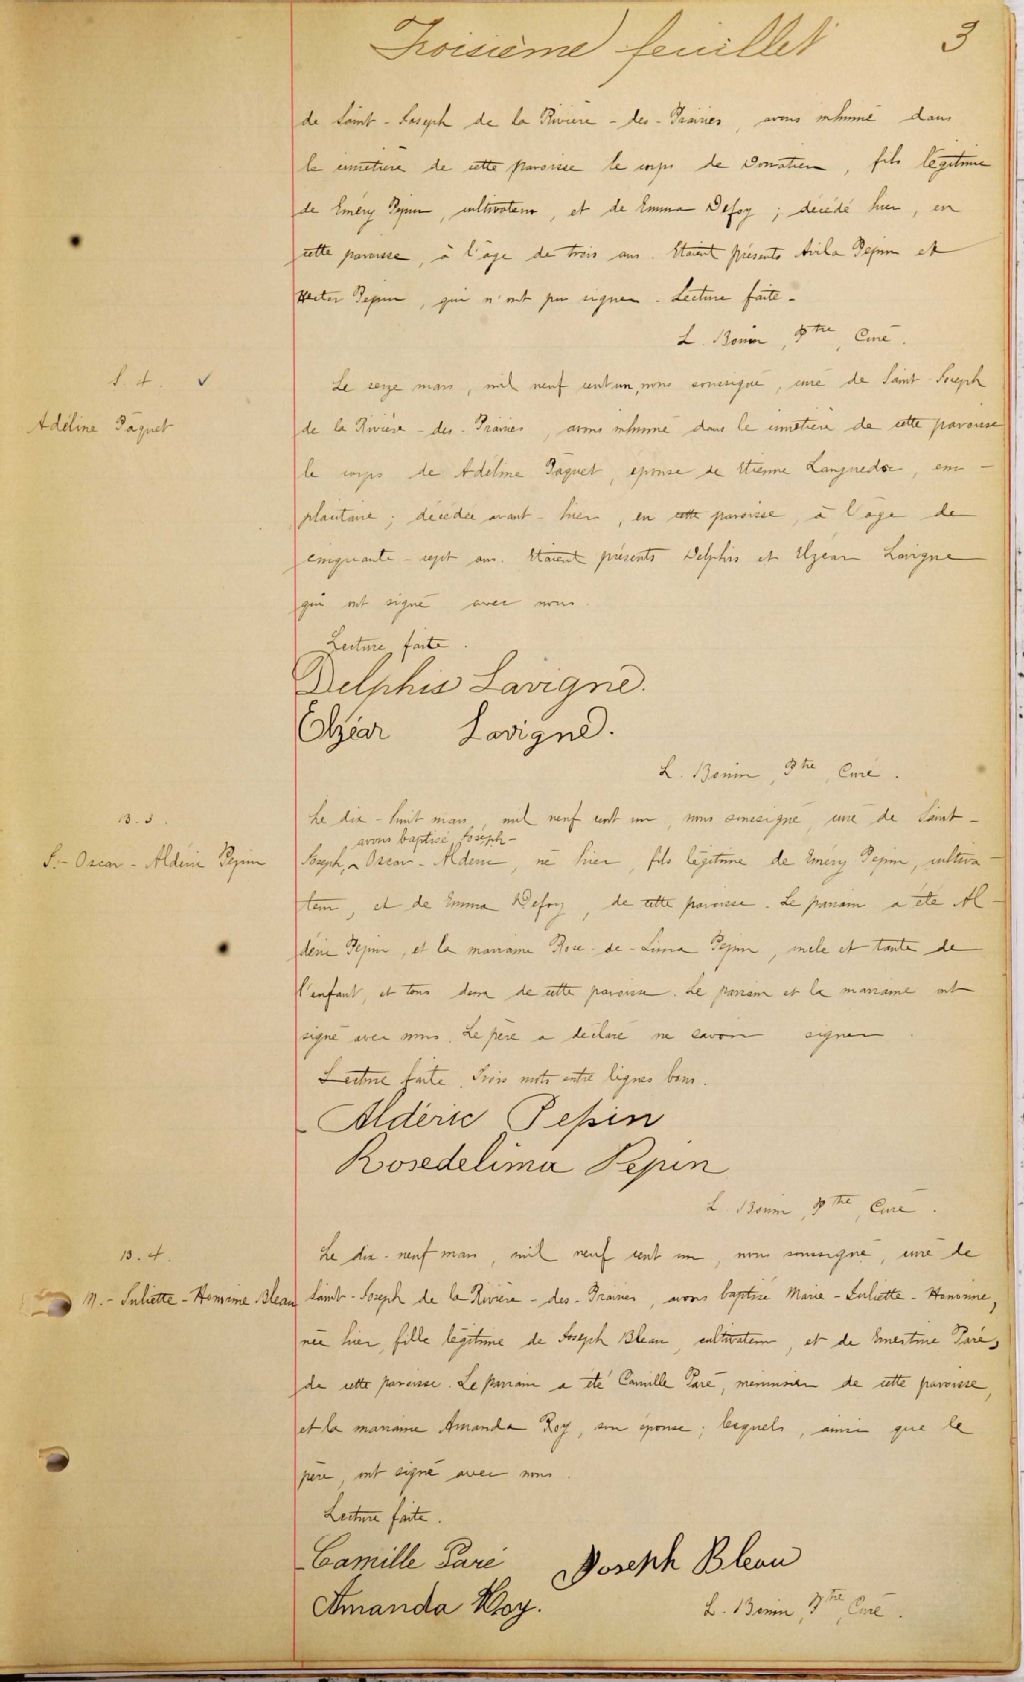 Troisième feuillet 3
de Saint-Joseph de la Rivière-des-Prairies, avons inhumé dans
le cimetière de cette paroisse le corps de Donatien, fils légitime
de Eméry Pepin, cultivateur, et de Emma Defoy ; décédé hier, en
cette paroisse, à l'âge de trois ans. Etaient présents Avila Pepin et
Hector Pepin, qui n'ont pu signer. Lecture faite.
L. Bonin, Ptre, Curé.
S. 4. ✓
Adéline Pâquet
Le seize mars, mil neuf cent un, nous soussigné, curé de Saint-Joseph
de la Rivière-des-Prairies, avons inhumé dans le cimetière de cette paroisse
le corps de Adéline Pâquet, épouse de Etienne Languedoc, em-
plaitaire ; décédée avant-hier, en cette paroisse, à l'âge de
cinquante-sept ans. Etaient présents Delphis et Elzéar Lavigne
qui ont signé avec nous.
Lecture faite.
Delphis Lavigne.
Elzéar Lavigne.
L. Bonin, Ptre, Curé.
B. 3.
J.-Oscar-Aldéric Pepin
Le dix-huit mars, mil neuf cent un, nous soussigné, curé de Saint-
avons baptisé Joseph-
Joseph, ^ Oscar-Aldéric, né hier, fils légitime de Eméry Pepin, cultiva-
teur, et de Emma Defoy, de cette paroisse. Le parrain a été Al-
déric Pepin, et la marraine Rose-de-Lima Pepin, oncle et tante de
l'enfant, et tous deux de cette paroisse. Le parrain et la marraine ont
signé avec nous. Le père a déclaré ne savoir signer
Lecture faite. Trois mots entre lignes bons.
Aldéric Pepin
Rosedelima Pepin
L. Bonin, Ptre, Curé.
B. 4.
M.-Juliette-Honorine Bleau
Le dix-neuf mars, mil neuf cent un, nous soussigné, curé de
Saint-Joseph de la Rivière-des-Prairies, avons baptisé Marie-Juliette-Honorine,
née hier, fille légitime de Joseph Bleau, cultivateur, et de Ernestine Paré,
de cette paroisse. Le parrain a été Camille Paré, menuisier de cette paroisse,
et la marraine Amanda Roy, son épouse ; lesquels, ainsi que le
père, ont signé avec nous.
Lecture faite.
Camille Paré Joseph Bleau
Amanda Roy.
L. Bonin, Ptre, Curé.